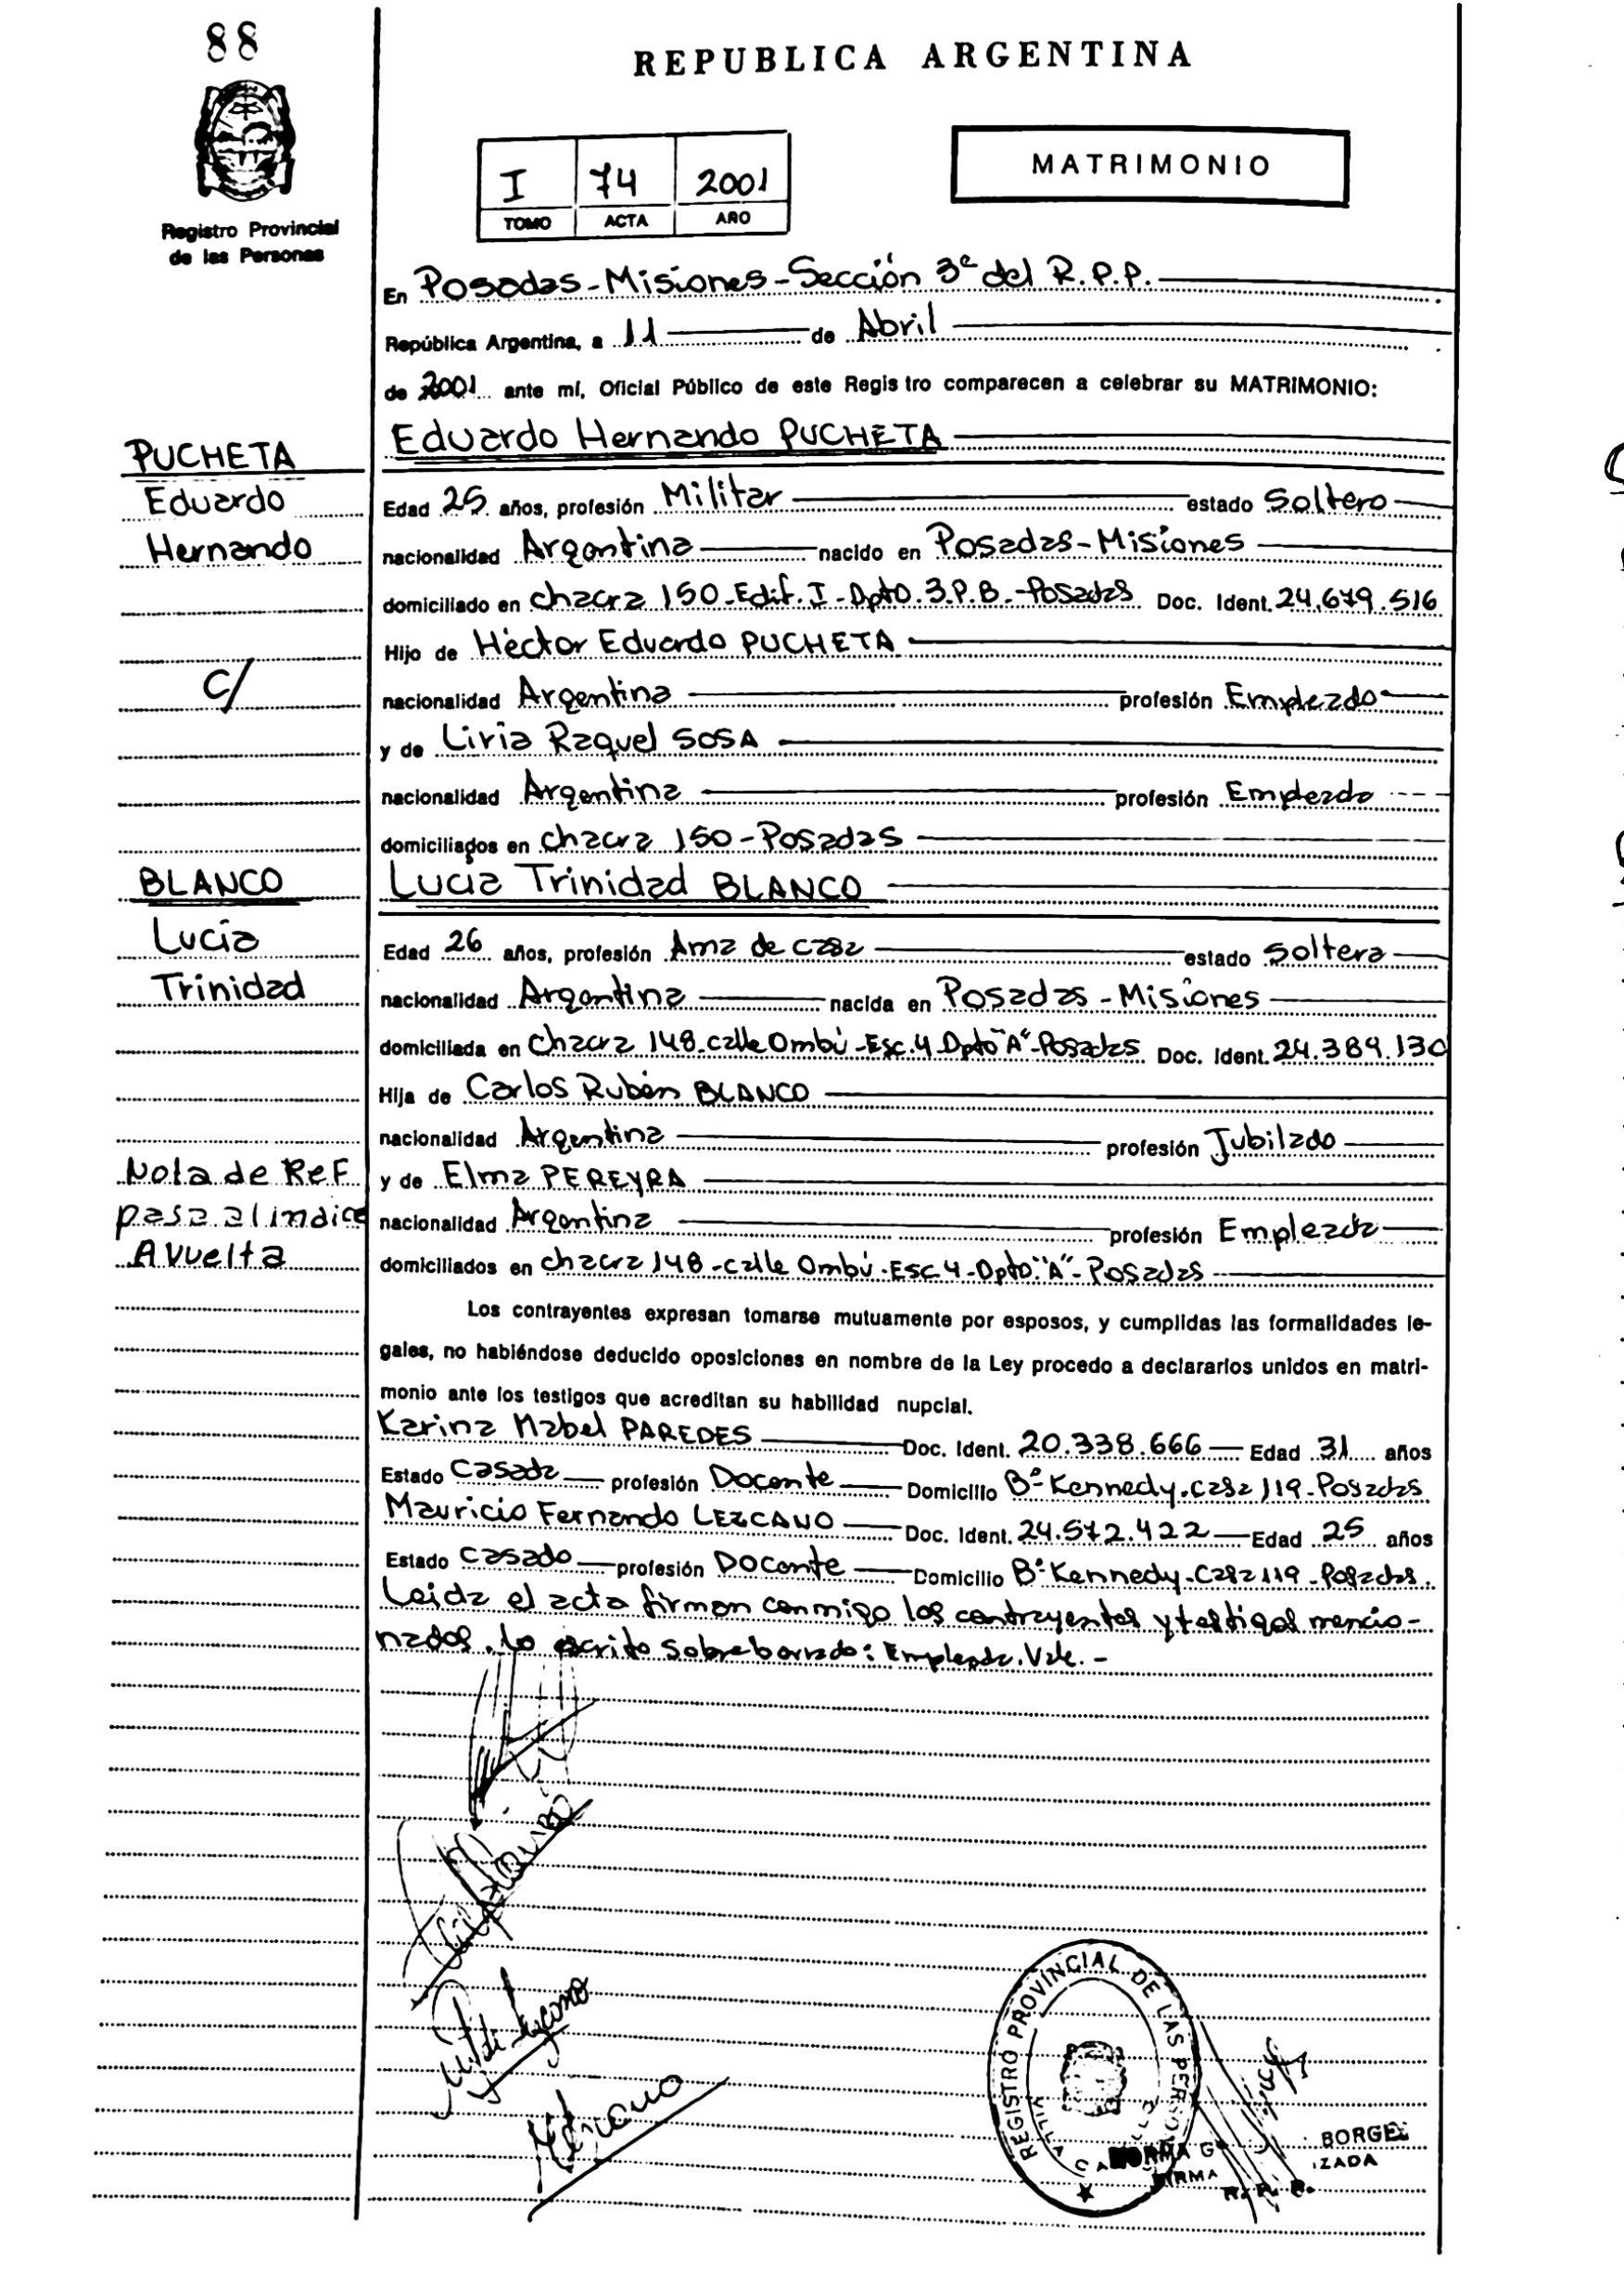 88
REPUBLICA ARGENTINA
MATRIMONIO
I 74 2001
TOMO ACTA AÑO
Registro Provincial
de las Personas
En Posadas-Misiones-Sección 3ª del R.P.P.
República Argentina, a 11 de Abril
de 2001 ante mí, Oficial Público de este Regis tro comparecen a celebrar su MATRIMONIO:
Eduardo Hernando PUCHETA
PUCHETA
Eduardo
Hernando
Edad 25 años, profesión Militar estado Soltero
nacionalidad Argentina nacido en Posadas-Misiones
domiciliado en Chacra 150-Edif. I-Dpto.3.P.B.-Posadas Doc. Ident. 24.679.516
Hijo de Héctor Eduardo PUCHETA
c/
nacionalidad Argentina profesión Empleado
y de Liria Raquel SOSA
nacionalidad Argentina profesión Empleada
domiciliados en Chacra 150-Posadas
BLANCO
Lucia
Trinidad
Lucia Trinidad BLANCO
Edad 26 años, profesión Ama de casa estado Soltera
nacionalidad Argentina nacida en Posadas-Misiones
domiciliada en Chacra 148-calle Ombú-Esc.4 Dpto "A"-Posadas Doc. Ident. 24.389.130
Hija de Carlos Rubén BLANCO
nacionalidad Argentina profesión Jubilado
y de Elma PEREYRA
Nota de Ref
pasa al indice
A vuelta
nacionalidad Argentina profesión Empleada
domiciliados en chacra 148-calle Ombú-Esc 4-Dpto."A"-Posadas
Los contrayentes expresan tomarse mutuamente por esposos, y cumplidas las formalidades le-
gales, no habiéndose deducido oposiciones en nombre de la Ley procedo a declararlos unidos en matri-
monio ante los testigos que acreditan su habilidad nupcial.
Karina Mabel PAREDES Doc. Ident. 20.338.666 Edad 31 años
Estado Casada profesión Docente Domicilio Bº Kennedy-casa 119-Posadas
Mauricio Fernando LEZCANO Doc. Ident. 24.572.422 Edad 25 años
Estado Casado profesión Docente Domicilio Bº Kennedy-Casa 119-Posadas.
Leida el acta firman conmigo los contrayentes y testigos mencio-
nados. Lo escrito sobreborrado: Empleada. Vale.-
REGISTRO PROVINCIAL DE LAS PERSO
VILLA CABELLO
NORMA G BORGE
FIRMA IZADA
R. P. P.